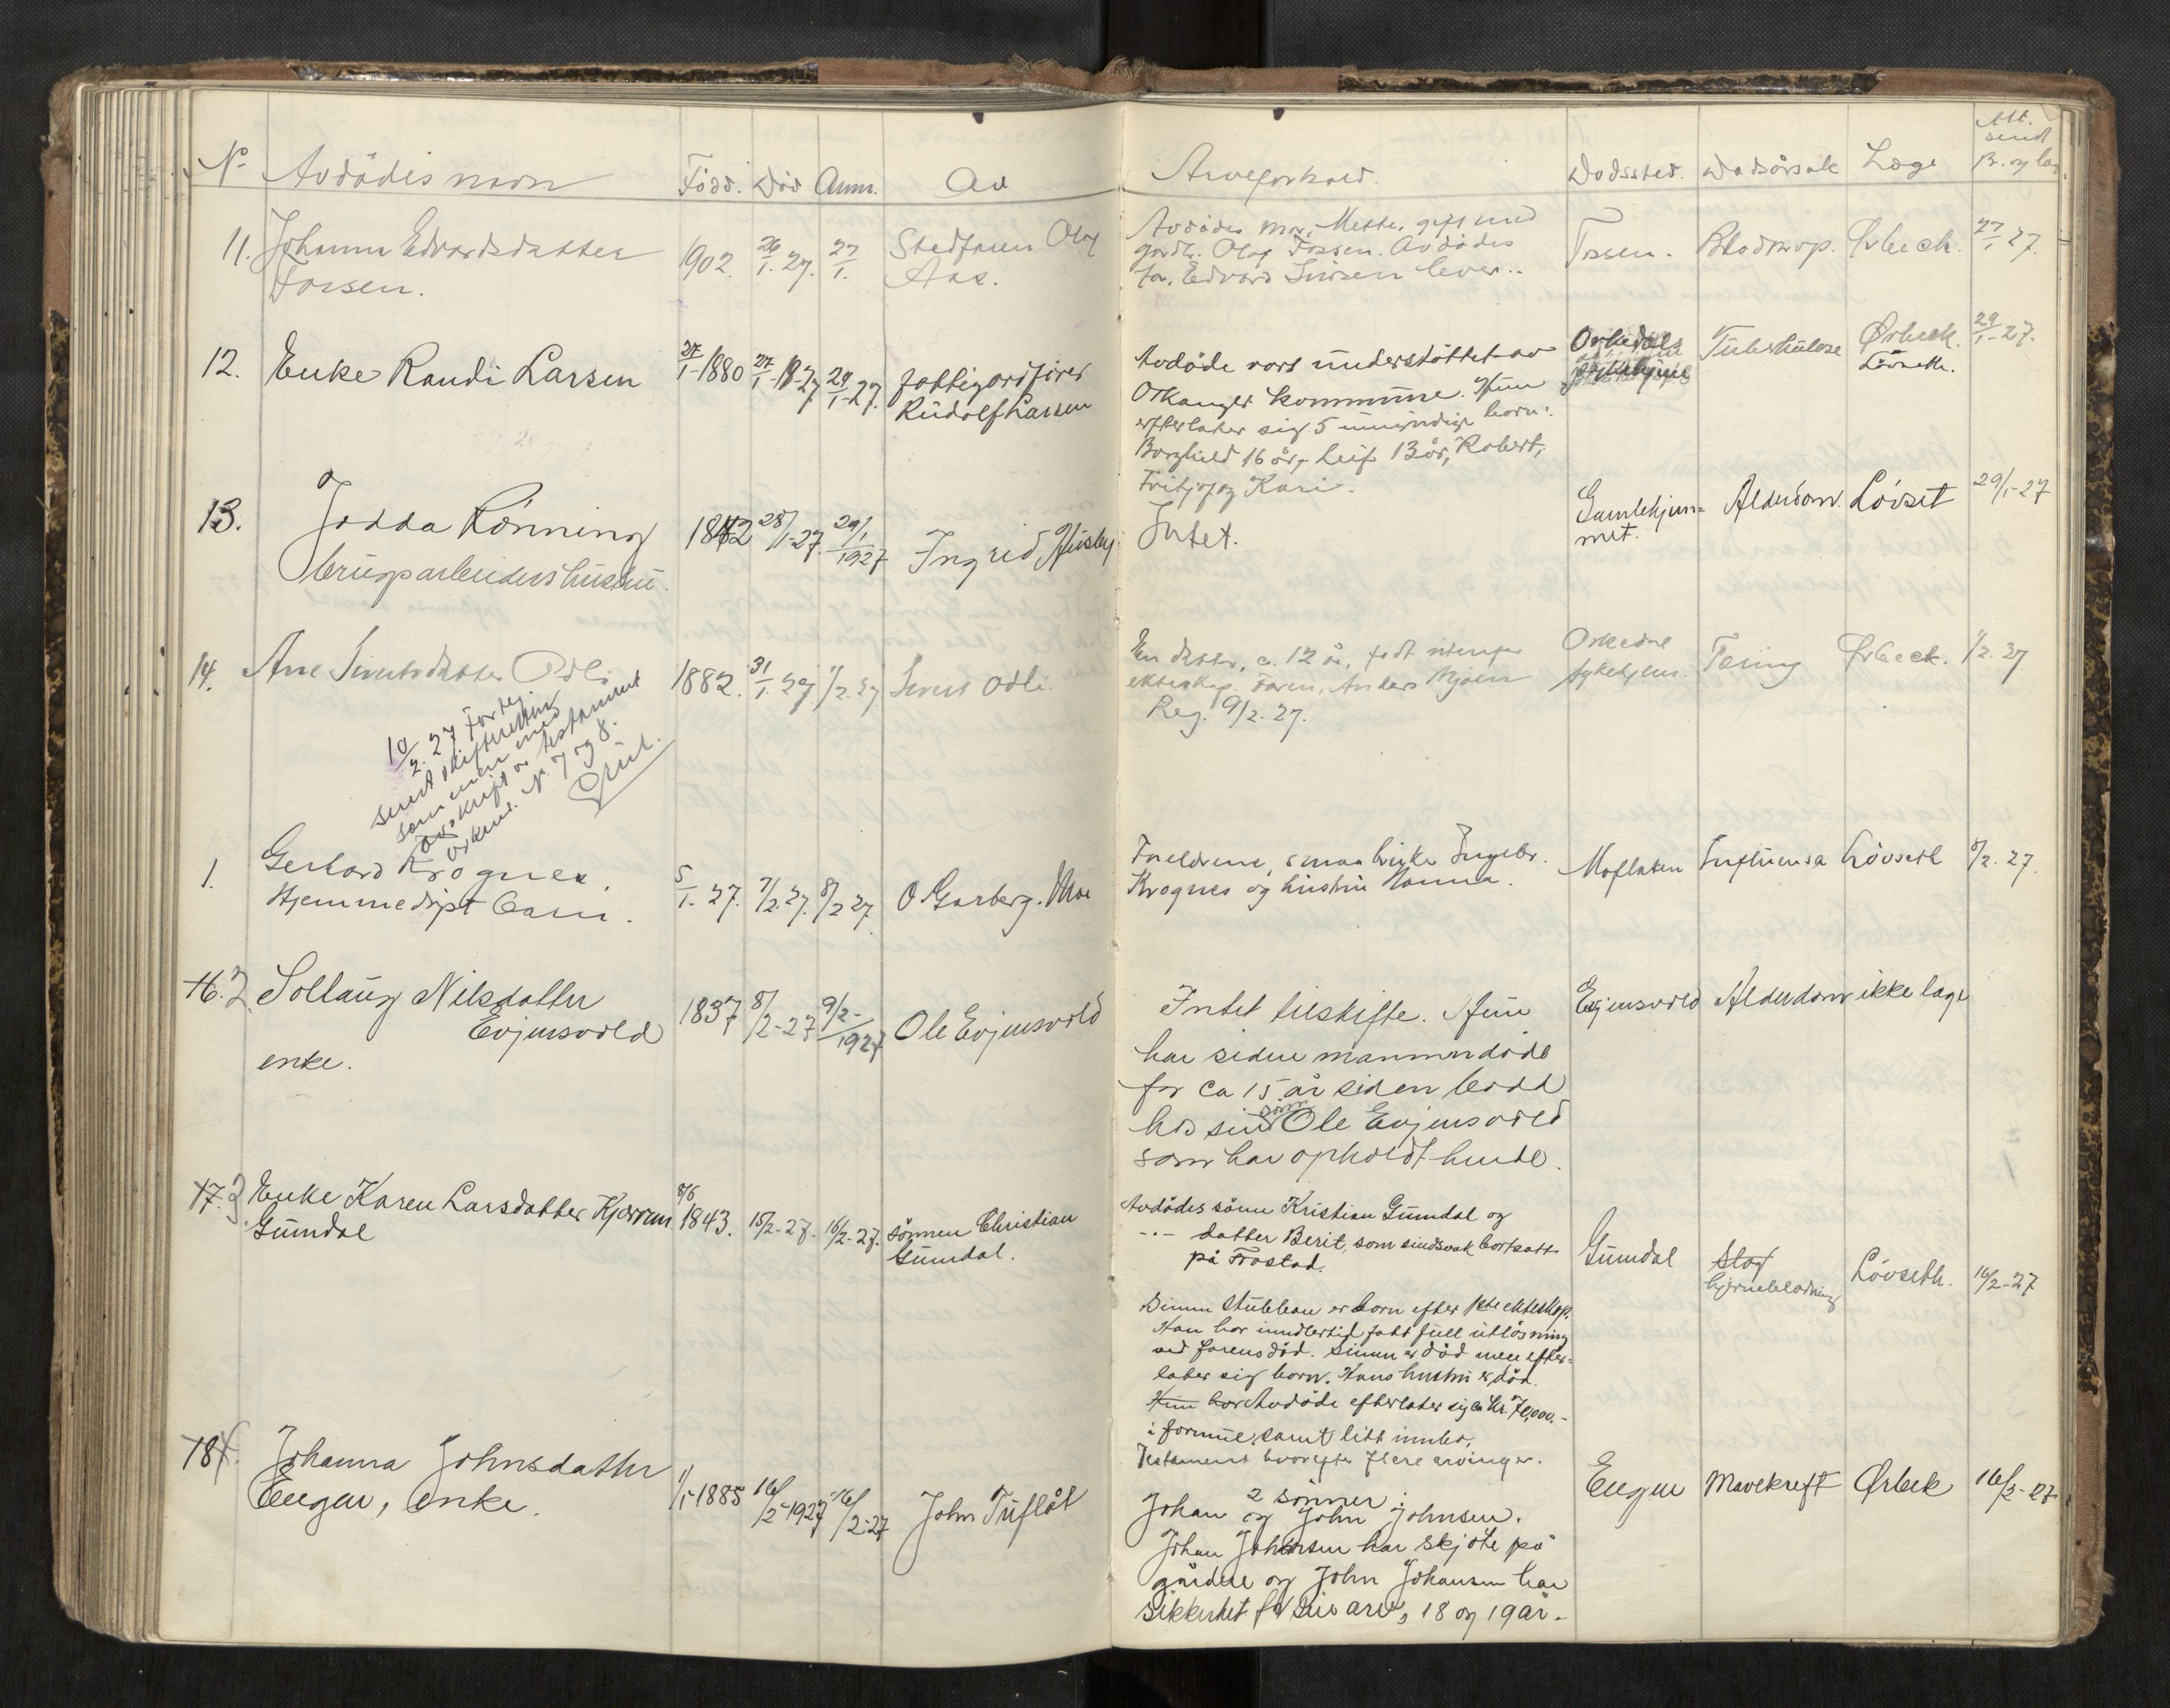 No Avdödes navn Född. Död Anm. Av Arveforhold. Dødssted. Dødsårsak Læge Att. sendt B. og læ
11. Johanna Edvardsdatter 1902. 26/1. 27. 27/1. Stedfaren Olaf
Fossen. Aas.
Avdødes mor, Mette, gift med
gårdbr. Olaf Fossen. Avdødes
far, Edvard lever..
Fossen. Blodprop. Ørbeck. 27/1 27.
12. Enke Randi Larsen 27/1-1880 27/1-1927 29/1-27. fattigårdfører
Rudolf Larsen
Avdøde vart understöttet av
Orkanger kommune. Hun
efterlater sig 5 umyndige barn:
Borghild 16 år, Leif 13 år, Robert,
Fritjof og Kari.
Orkedals
sykehjem
Tuberkulose Ørbeck. 29/1-27.
Lövseth.
13. Jodda Lönning 1842 28/1-27. 29/1 1927 Ingrid Husby
brugsarbeiders hustru.
Intet.
Gamlehjem=
met.
Alderdom. Lövset 29/1-27
14. Ane Sivertsdatter Odli 1882. 31/1. 27. 1/2. 27 Sivert Odli.
En datter, c. 12 år, født utenfor
ekteskap. Faren, Anders Mjøen
Reg. 9/2. 27.
Orkedal
sykehjem.
Tæring Ørbeck. 1/2. 27
10/2. 27
sendt skifteretten
sammen med
avskrift av testament
No 7 og 8.
1. Gerhard Krognes, 5/1. 27. 7/2. 27. 8/2 27 O Garberg. Moe
Hjemmedøpt barn.
Foreldrene, småbruker Ingebr.
Krognes og hustru Hanna.
Moflaten Influensa Lövseth 8/2. 27.
16. 2 Sollaug Nilsdatter 1837 8/2-27 9/2-1927 Ole Evjensvold
Evjensvold
enke.
Intet til skifte. Hun
har siden mannen døde
for ca 15 år siden bodd
hos sin sönn Ole Evjensvold
som har opholdt hende.
Evjensvold Alderdom ikke læge
17. 3 Enke Karen Larsdatter Kjørrem 8/6 1843. 15/2-27. 16/2-27. sönnen Christian
Gumdal Gumdal.
Avdødes sönn Kristian Gumdal og
-.- datter Berit, som sindssvak bortsatt
på Frostad.
Simen Stubban er barn efter 1ste ekteskap.
Han har imidlertid fått full utlösning
ved farens död. Simen er död men efter=
later sig barn. Hans hustru er död.
Hun har Avdøde efterlater sig ca kr. 70,000.-
i formue, samt litt innbo,
Testament hvorefter flere arvinger.
Gumdal Slag
hjerneblødning
Lövseth. 16/2-27
18 4. Johanna Johnsdatter 1/1-1885 16/2-1927 16/2-27 John Tuflåt
Engen, enke.
2 sönner:
Johan og John Johnsen.
Johan Johnsen har skjöte på
gården og John Johansen har
sikkerhet for sin arv, 18 og 19 år.
Engen Mavekreft Ørbek 16/2-27